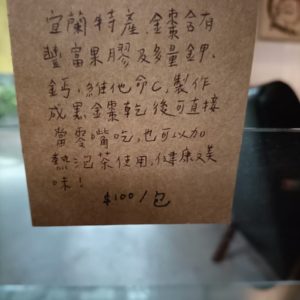 宜蘭特產,金棗含有
豐富果膠及多量鉀,
鈣,維他命C,製作
成黑金棗乾後可直接
當零嘴吃,也可以加
熱泡茶使用,健康又美
味!
$100/包